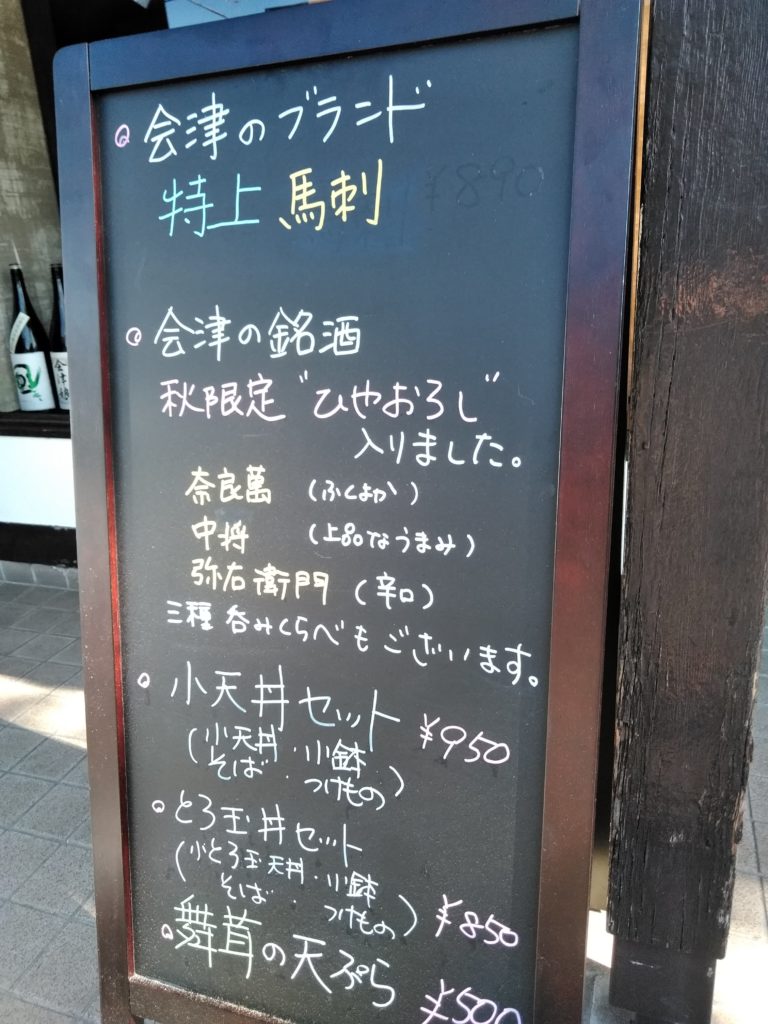 会津のブランド
特上 馬刺 ¥890
会津の銘酒
秋限定"ひやおろし"
入りました。
奈良萬 (ふくよか)
中将 (上品なうまみ)
弥右衛門 (辛口)
三種 呑みくらべもございます。
小天丼セット ¥950
(小天丼・小鉢
そば・つけもの)
とろ玉丼セット
(小とろ玉天丼・小鉢
そば・つけもの) ¥850
舞茸の天ぷら ¥500